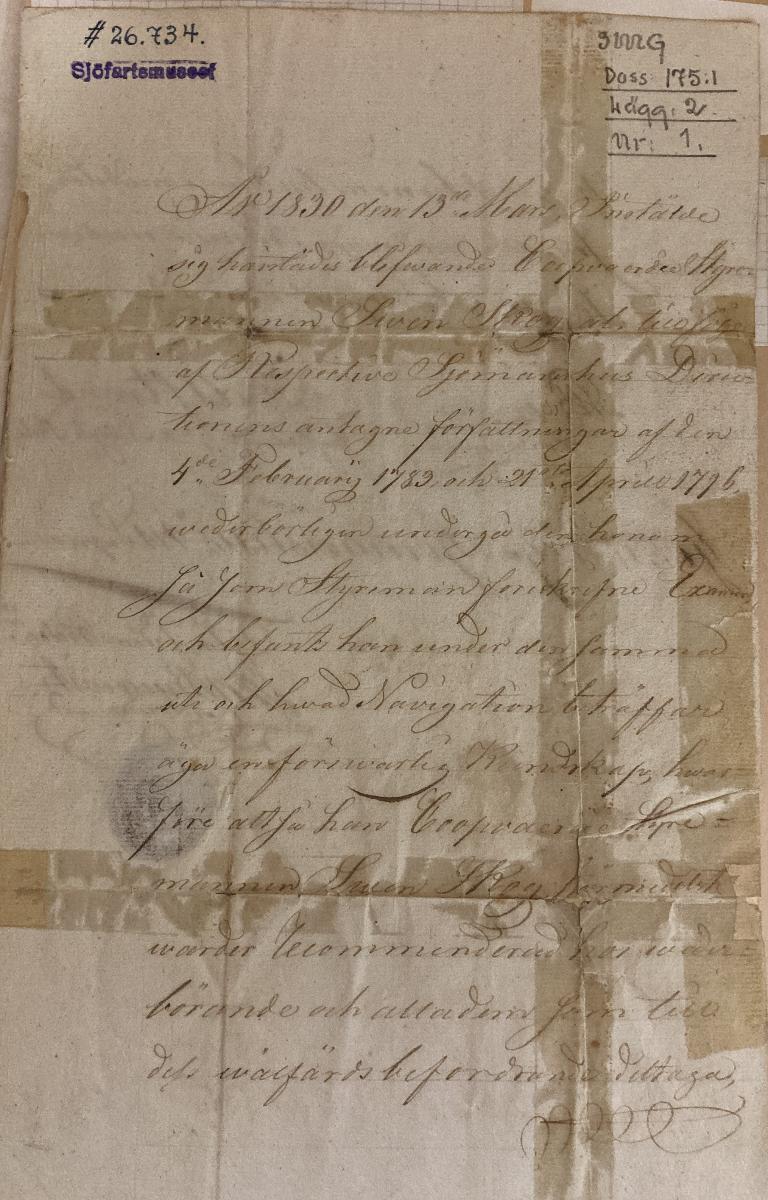 # 26.734.
Sjöfartsmuseet
SMG
Doss 175:1
Lägg: 2.
Nr: 1.
År 1830 den 13de Mars, Instälde
sig härstädes blifwande Coopvaerdie Styre-
mannen Swen Skog, at, til följe
af Respective Sjömanshus Direc-
tionens antagne författningar af den
4de Februarÿ 1783, och 21ste Aprill 1796,
wederbörligen undergå den honom
så som Styreman föreskrifne Examen,
och befants han under den samma
uti och hwad Navigation beträffar
äga en förswarlig Kundskap, hwar-
före altså han Coopvaerdie Styre-
mannen Swen Skog förmedelst
warder Recommenderad hos weder-
börande och alla dem som till
dess wälfärds befordrande deltaga,